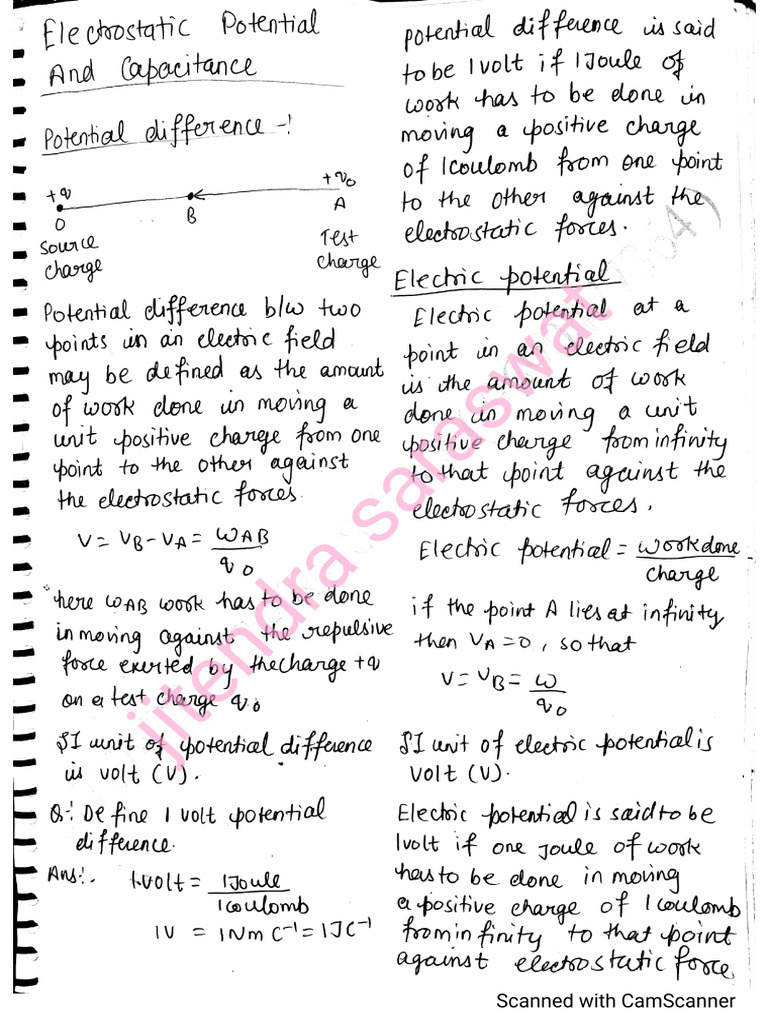 Electrostatic Potential
And Capacitance
Potential difference -:
+q
+q₀
O
B
A
Source
charge
Test
charge
Potential difference b/w two
points in an electric field
may be defined as the amount
of work done in moving a
unit positive charge from one
point to the other against
the electrostatic forces.
V = VB - VA = WAB / q₀
here WAB work has to be done
in moving against the repulsive
force exerted by the charge +q
on a test charge q₀
SI unit of potential difference
is volt (V).
Q:- Define 1 volt potential
difference.
Ans:- 1 volt = 1 Joule / 1 coulomb
1V = 1Nm C⁻¹ = 1JC⁻¹
potential difference is said
to be 1 volt if 1 Joule of
work has to be done in
moving a positive charge
of 1 coulomb from one point
to the other against the
electrostatic forces.
Electric potential
Electric potential at a
point in an electric field
is the amount of work
done in moving a unit
positive charge from infinity
to that point against the
electrostatic forces.
Electric potential = work done / charge
if the point A lies at infinity
then VA = 0, so that
V = VB = W / q₀
SI unit of electric potential is
volt (V).
Electric potential is said to be
1 volt if one joule of work
has to be done in moving
a positive charge of 1 coulomb
from infinity to that point
against electrostatic force
jitendra saraswat
Scanned with CamScanner